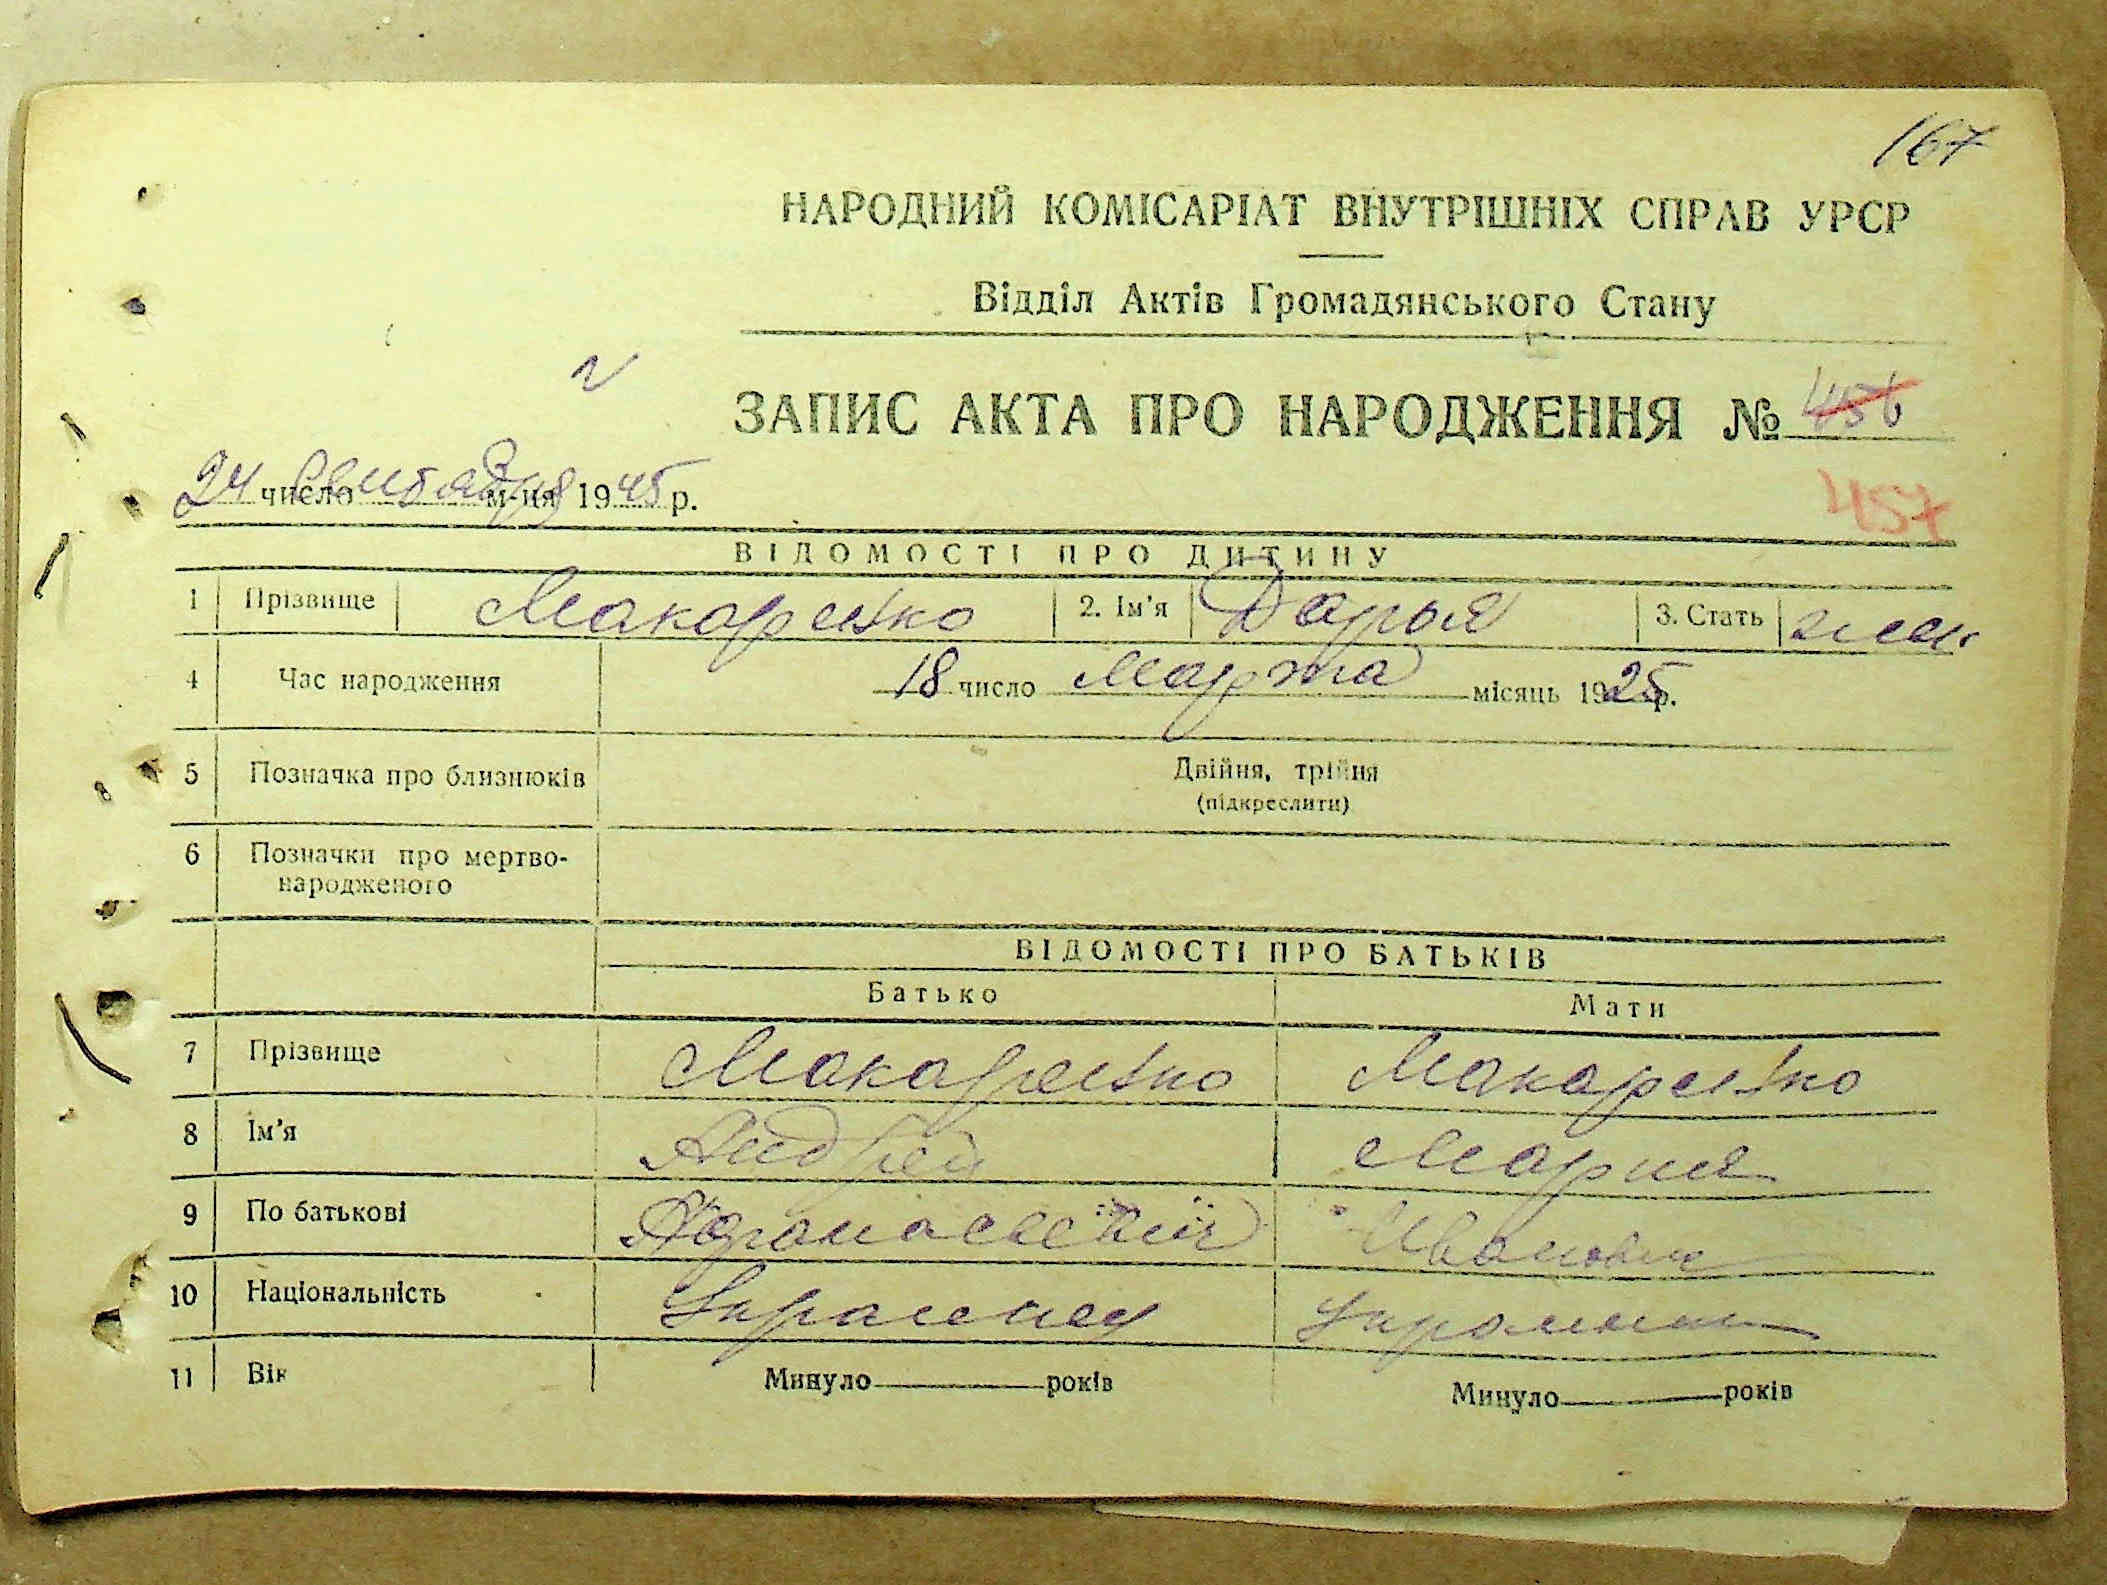 167
НАРОДНИЙ КОМІСАРІАТ ВНУТРІШНІХ СПРАВ УРСР
Відділ Актів Громадянського Стану
ЗАПИС АКТА ПРО НАРОДЖЕННЯ № 456
24 число Сентября м-ця 1945 р.
457
ВІДОМОСТІ ПРО ДИТИНУ
1 Прізвище Макаренко 2. Ім'я Дарья 3. Стать жен.
4 Час народження 18 число Марта місяць 1925 р.
5 Позначка про близнюків Двійня, трійня
(підкреслити)
6 Позначки про мертво-
народженого
ВІДОМОСТІ ПРО БАТЬКІВ
Батько Мати
7 Прізвище Макаренко Макаренко
8 Ім'я Андрей Мария
9 По батькові Афанасьевич Ивановна
10 Національність Украинец Украинка
11 Вік Минуло років Минуло років